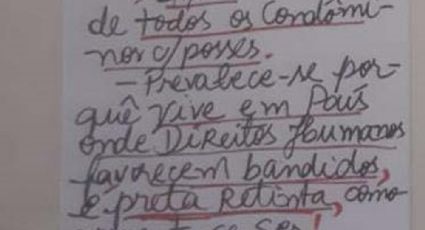 de todos os Condômi-
nos c/posses.
- Prevalece-se por-
quê vive em País
onde Direitos Humanos
favorecem bandidos,
é preta Retinta, como